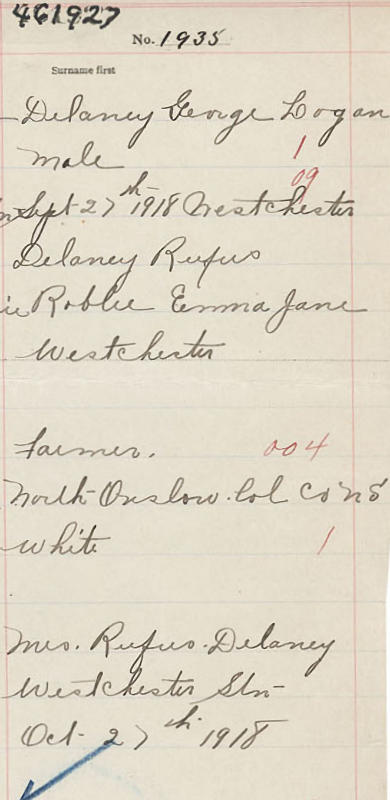 461927
No. 1935
Surname first
Delaney George Logan
Male 1
09
Sept 27th 1918 Westchester
Delaney Rufus
Roblee Emma Jane
Westchester
Farmer. 004
North Onslow. Col Co NS
White 1
Mrs. Rufus. Delaney
Westchester Stn
Oct 27th 1918